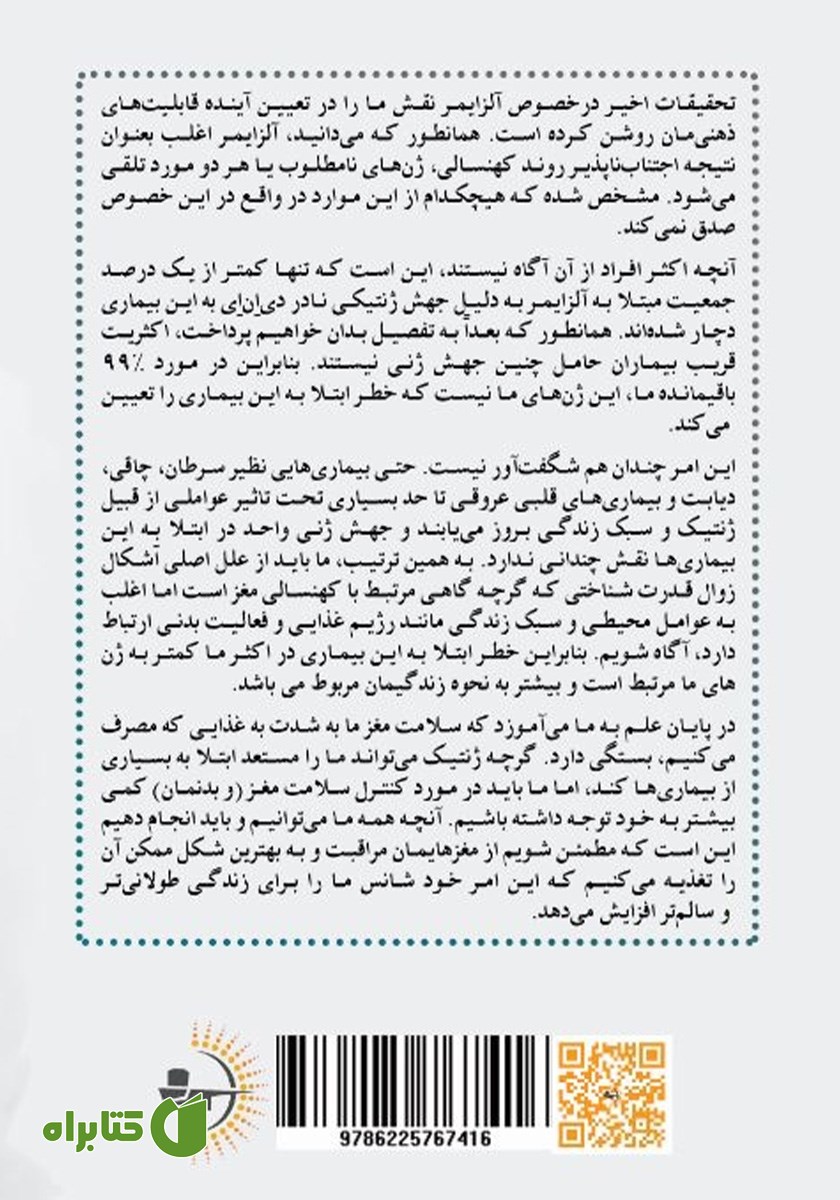 تحقیقات اخیر درخصوص آلزایمر نقش ما را در تعیین آینده قابلیت‌های
ذهنی‌مان روشن کرده است. همانطور که می‌دانید، آلزایمر اغلب بعنوان
نتیجه اجتناب‌ناپذیر روند کهنسالی، ژن‌های نامطلوب یا هر دو مورد تلقی
می‌شود. مشخص شده که هیچکدام از این موارد در واقع در این خصوص
صدق نمی‌کند.
آنچه اکثر افراد از آن آگاه نیستند، این است که تنها کمتر از یک درصد
جمعیت مبتلا به آلزایمر به دلیل جهش ژنتیکی نادر دی‌اِن‌اِی به این بیماری
دچار شده‌اند. همانطور که بعداً به تفصیل بدان خواهیم پرداخت، اکثریت
قریب بیماران حامل چنین جهش ژنی نیستند. بنابراین در مورد ۹۹٪
باقیمانده ما، این ژن‌های ما نیست که خطر ابتلا به این بیماری را تعیین
می‌کند.
این امر چندان هم شگفت‌آور نیست. حتی بیماری‌هایی نظیر سرطان، چاقی،
دیابت و بیماری‌های قلبی عروقی تا حد بسیاری تحت تاثیر عواملی از قبیل
ژنتیک و سبک زندگی بروز می‌یابند و جهش ژنی واحد در ابتلا به این
بیماری‌ها نقش چندانی ندارد. به همین ترتیب، ما باید از علل اصلی آشکال
زوال قدرت شناختی که گرچه گاهی مرتبط با کهنسالی مغز است اما اغلب
به عوامل محیطی و سبک زندگی مانند رژیم غذایی و فعالیت بدنی ارتباط
دارد، آگاه شویم. بنابراین خطر ابتلا به این بیماری در اکثر ما کمتر به ژن
های ما مرتبط است و بیشتر به نحوه زندگیمان مربوط می باشد.
در پایان علم به ما می‌آموزد که سلامت مغز ما به شدت به غذایی که مصرف
می‌کنیم، بستگی دارد. گرچه ژنتیک می‌تواند ما را مستعد ابتلا به بسیاری
از بیماری‌ها کند، اما ما باید در مورد کنترل سلامت مغز (و بدنمان) کمی
بیشتر به خود توجه داشته باشیم. آنچه همه ما می‌توانیم و باید انجام دهیم
این است که مطمئن شویم از مغزهایمان مراقبت و به بهترین شکل ممکن آن
را تغذیه می‌کنیم که این امر خود شانس ما را برای زندگی طولانی‌تر
و سالم‌تر افزایش می‌دهد.
9786225767416
کتابراه